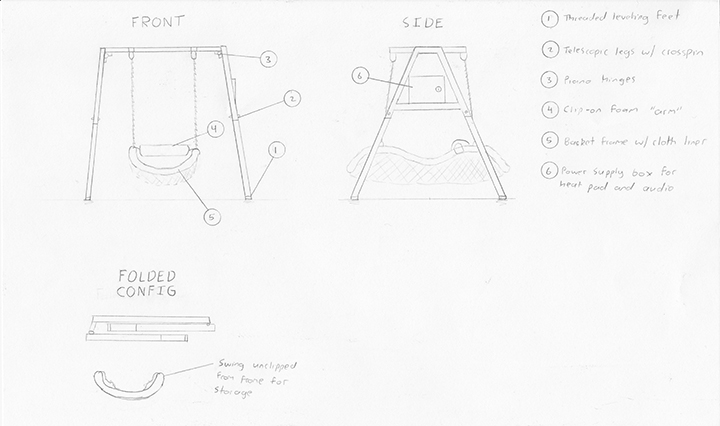 FRONT
SIDE
① Threaded leveling feet
② Telescopic legs w/ crosspin
③ Piano hinges
④ Clip-on foam "arm"
⑤ Basket frame w/ cloth liner
⑥ Power supply box for
heat pad and audio
3
2
4
1
5
6
FOLDED
CONFIG
Swing unclipped
from frame for
storage